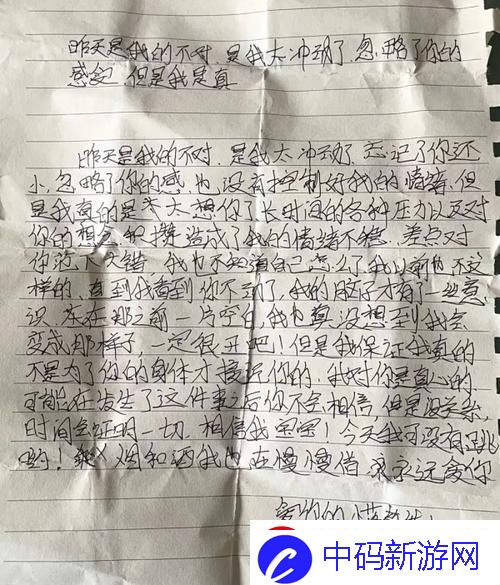 昨天是我的不对,是我太冲动了,忽略了你的
感记,但是我是真
昨天是我的不对,是我太冲动了,忘记了你还
小,忽略了你的感,也没有控制好我的情绪,但
是我真的是太想你了,长时间的各种压力以及对
你的想念积攒造成了我的情绪不稳,差点对
你犯了大错,我也不知道自己怎么了,我以前也不这
样的,直到我看到你不动了,我的脑子才有了一丝意
识,在那之前一片空白,我也真没想到我会
变成那样子,一定很丑吧!但是我保证我真的
不是为了你的身体才接近你的,我对你是真心的,
可能在发生了这件事之后你不会相信,但是没关系,
时间会证明一切,相信我宝宝!今天我可没有
哟!烟和酒我也在慢慢借,永远爱你
爱你的
中码新游网